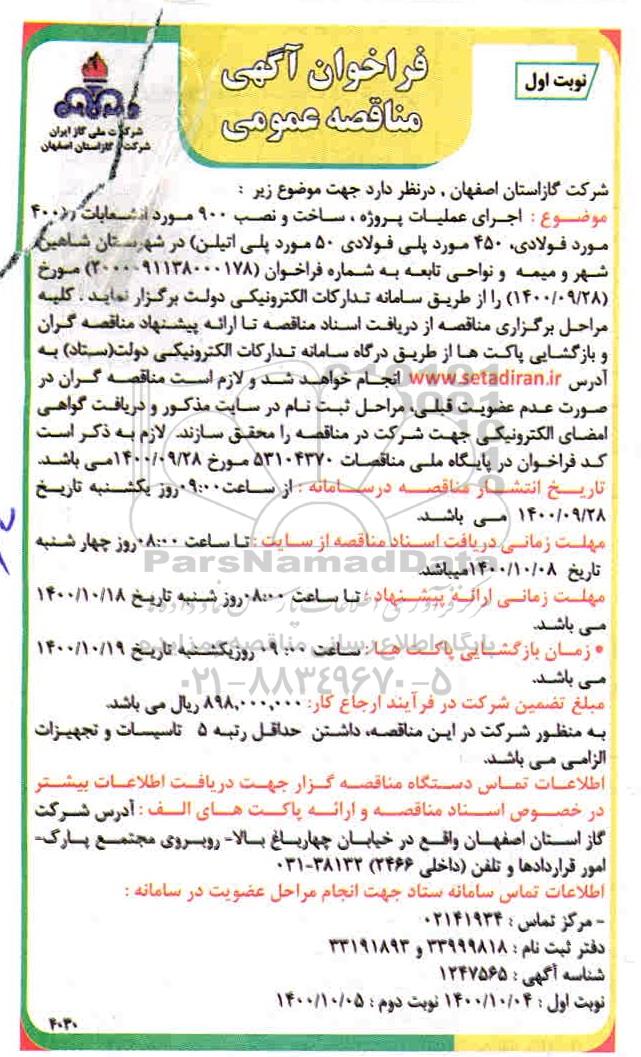 فراخوان آگهی
مناقصه عمومی
نوبت اول
شرکت ملی گاز ایران
شرکت گازاستان اصفهان
شرکت گازاستان اصفهان , درنظر دارد جهت موضوع زیر :
موضوع : اجرای عملیات پروژه ، ساخت و نصب ۹۰۰ مورد انشعابات (۴۰۰
مورد فولادی، ۴۵۰ مورد پلی فولادی ۵۰ مورد پلی اتیلن) در شهرستان شاهین
شهر و میمه و نواحی تابعه به شماره فراخوان (۲۰۰۰۰۹۱۱۳۸۰۰۰۱۷۸) مورخ
(۱۴۰۰/۰۹/۲۸) را از طریق سامانه تدارکات الکترونیکی دولت برگزار نماید . کلیه
مراحل برگزاری مناقصه از دریافت اسناد مناقصه تا ارائه پیشنهاد مناقصه گران
و بازگشایی پاکت ها از طریق درگاه سامانه تدارکات الکترونیکی دولت(ستاد) به
آدرس www.setadiran.ir انجام خواهد شد و لازم است مناقصه گران در
صورت عدم عضویت قبلی، مراحل ثبت نام در سایت مذکور و دریافت گواهی
امضای الکترونیکی جهت شرکت در مناقصه را محقق سازند. لازم به ذکر است
کد فراخوان در پایگاه ملی مناقصات ۵۳۱۰۴۳۷۰ مورخ ۱۴۰۰/۰۹/۲۸می باشد.
تاریخ انتشار مناقصه درسامانه : از ساعت۰۹:۰۰روز یکشنبه تاریخ
۱۴۰۰/۰۹/۲۸ می باشد.
مهلت زمانی دریافت اسناد مناقصه از سایت : تا ساعت ۰۸:۰۰روز چهار شنبه
تاریخ ۱۴۰۰/۱۰/۰۸میباشد.
مهلت زمانی ارائه پیشنهاد : تا ساعت ۰۸:۰۰روز شنبه تاریخ ۱۴۰۰/۱۰/۱۸
می باشد.
• زمان بازگشایی پاکت ها : ساعت ۰۹:۰۰ روزیکشنبه تاریخ ۱۴۰۰/۱۰/۱۹
می باشد.
مبلغ تضمین شرکت در فرآیند ارجاع کار: ۸۹۸,۰۰۰,۰۰۰ ریال می باشد.
به منظور شرکت در این مناقصه، داشتن حداقل رتبه ۵ تاسیسات و تجهیزات
الزامی می باشد.
اطلاعات تماس دستگاه مناقصه گزار جهت دریافت اطلاعات بیشتر
در خصوص اسناد مناقصه و ارائه پاکت های الف : آدرس شرکت
گاز استان اصفهان واقع در خیابان چهارباغ بالا- روبروی مجتمع پارک-
امور قراردادها و تلفن (داخلی ۲۴۶۶) ۳۸۱۳۲-۰۳۱
اطلاعات تماس سامانه ستاد جهت انجام مراحل عضویت در سامانه :
- مرکز تماس : ۰۲۱۴۱۹۳۴
دفتر ثبت نام : ۳۳۹۹۹۸۱۸ و ۳۳۱۹۱۸۹۳
شناسه آگهی : ۱۲۴۷۵۶۵
نوبت اول : ۱۴۰۰/۱۰/۰۴ نوبت دوم : ۱۴۰۰/۱۰/۰۵
۴۰۳۰
ParsNamadData
پایگاه اطلاع رسانی مناقصه و مزایده
۰۲۱-۸۸۳۴۹۶۷۰-۵